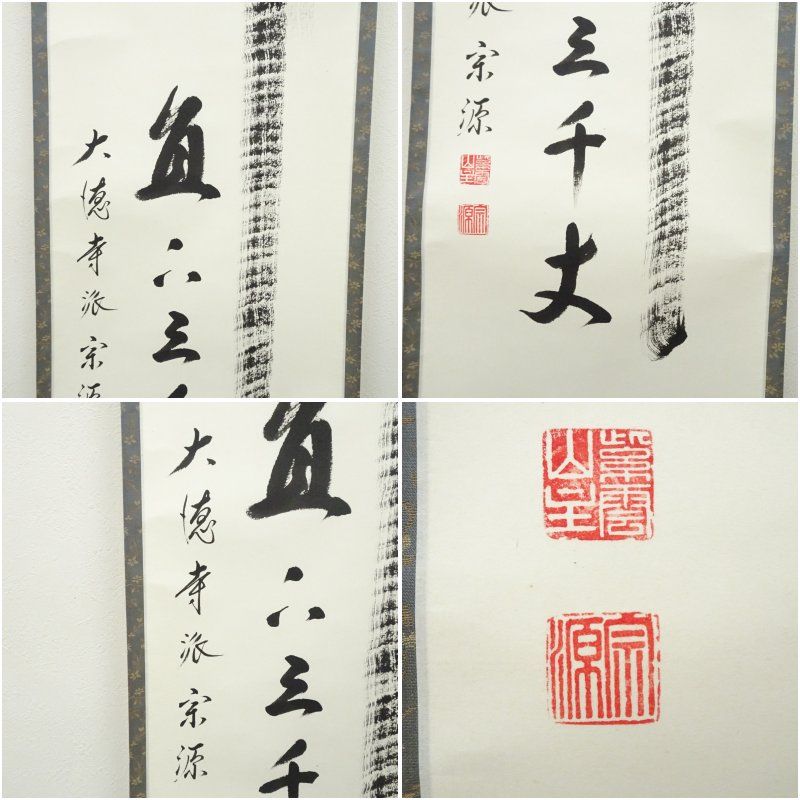 直下三千
大徳寺派宗源
三千丈
派宗源
宗源
直下三千
大徳寺派宗源
宗源